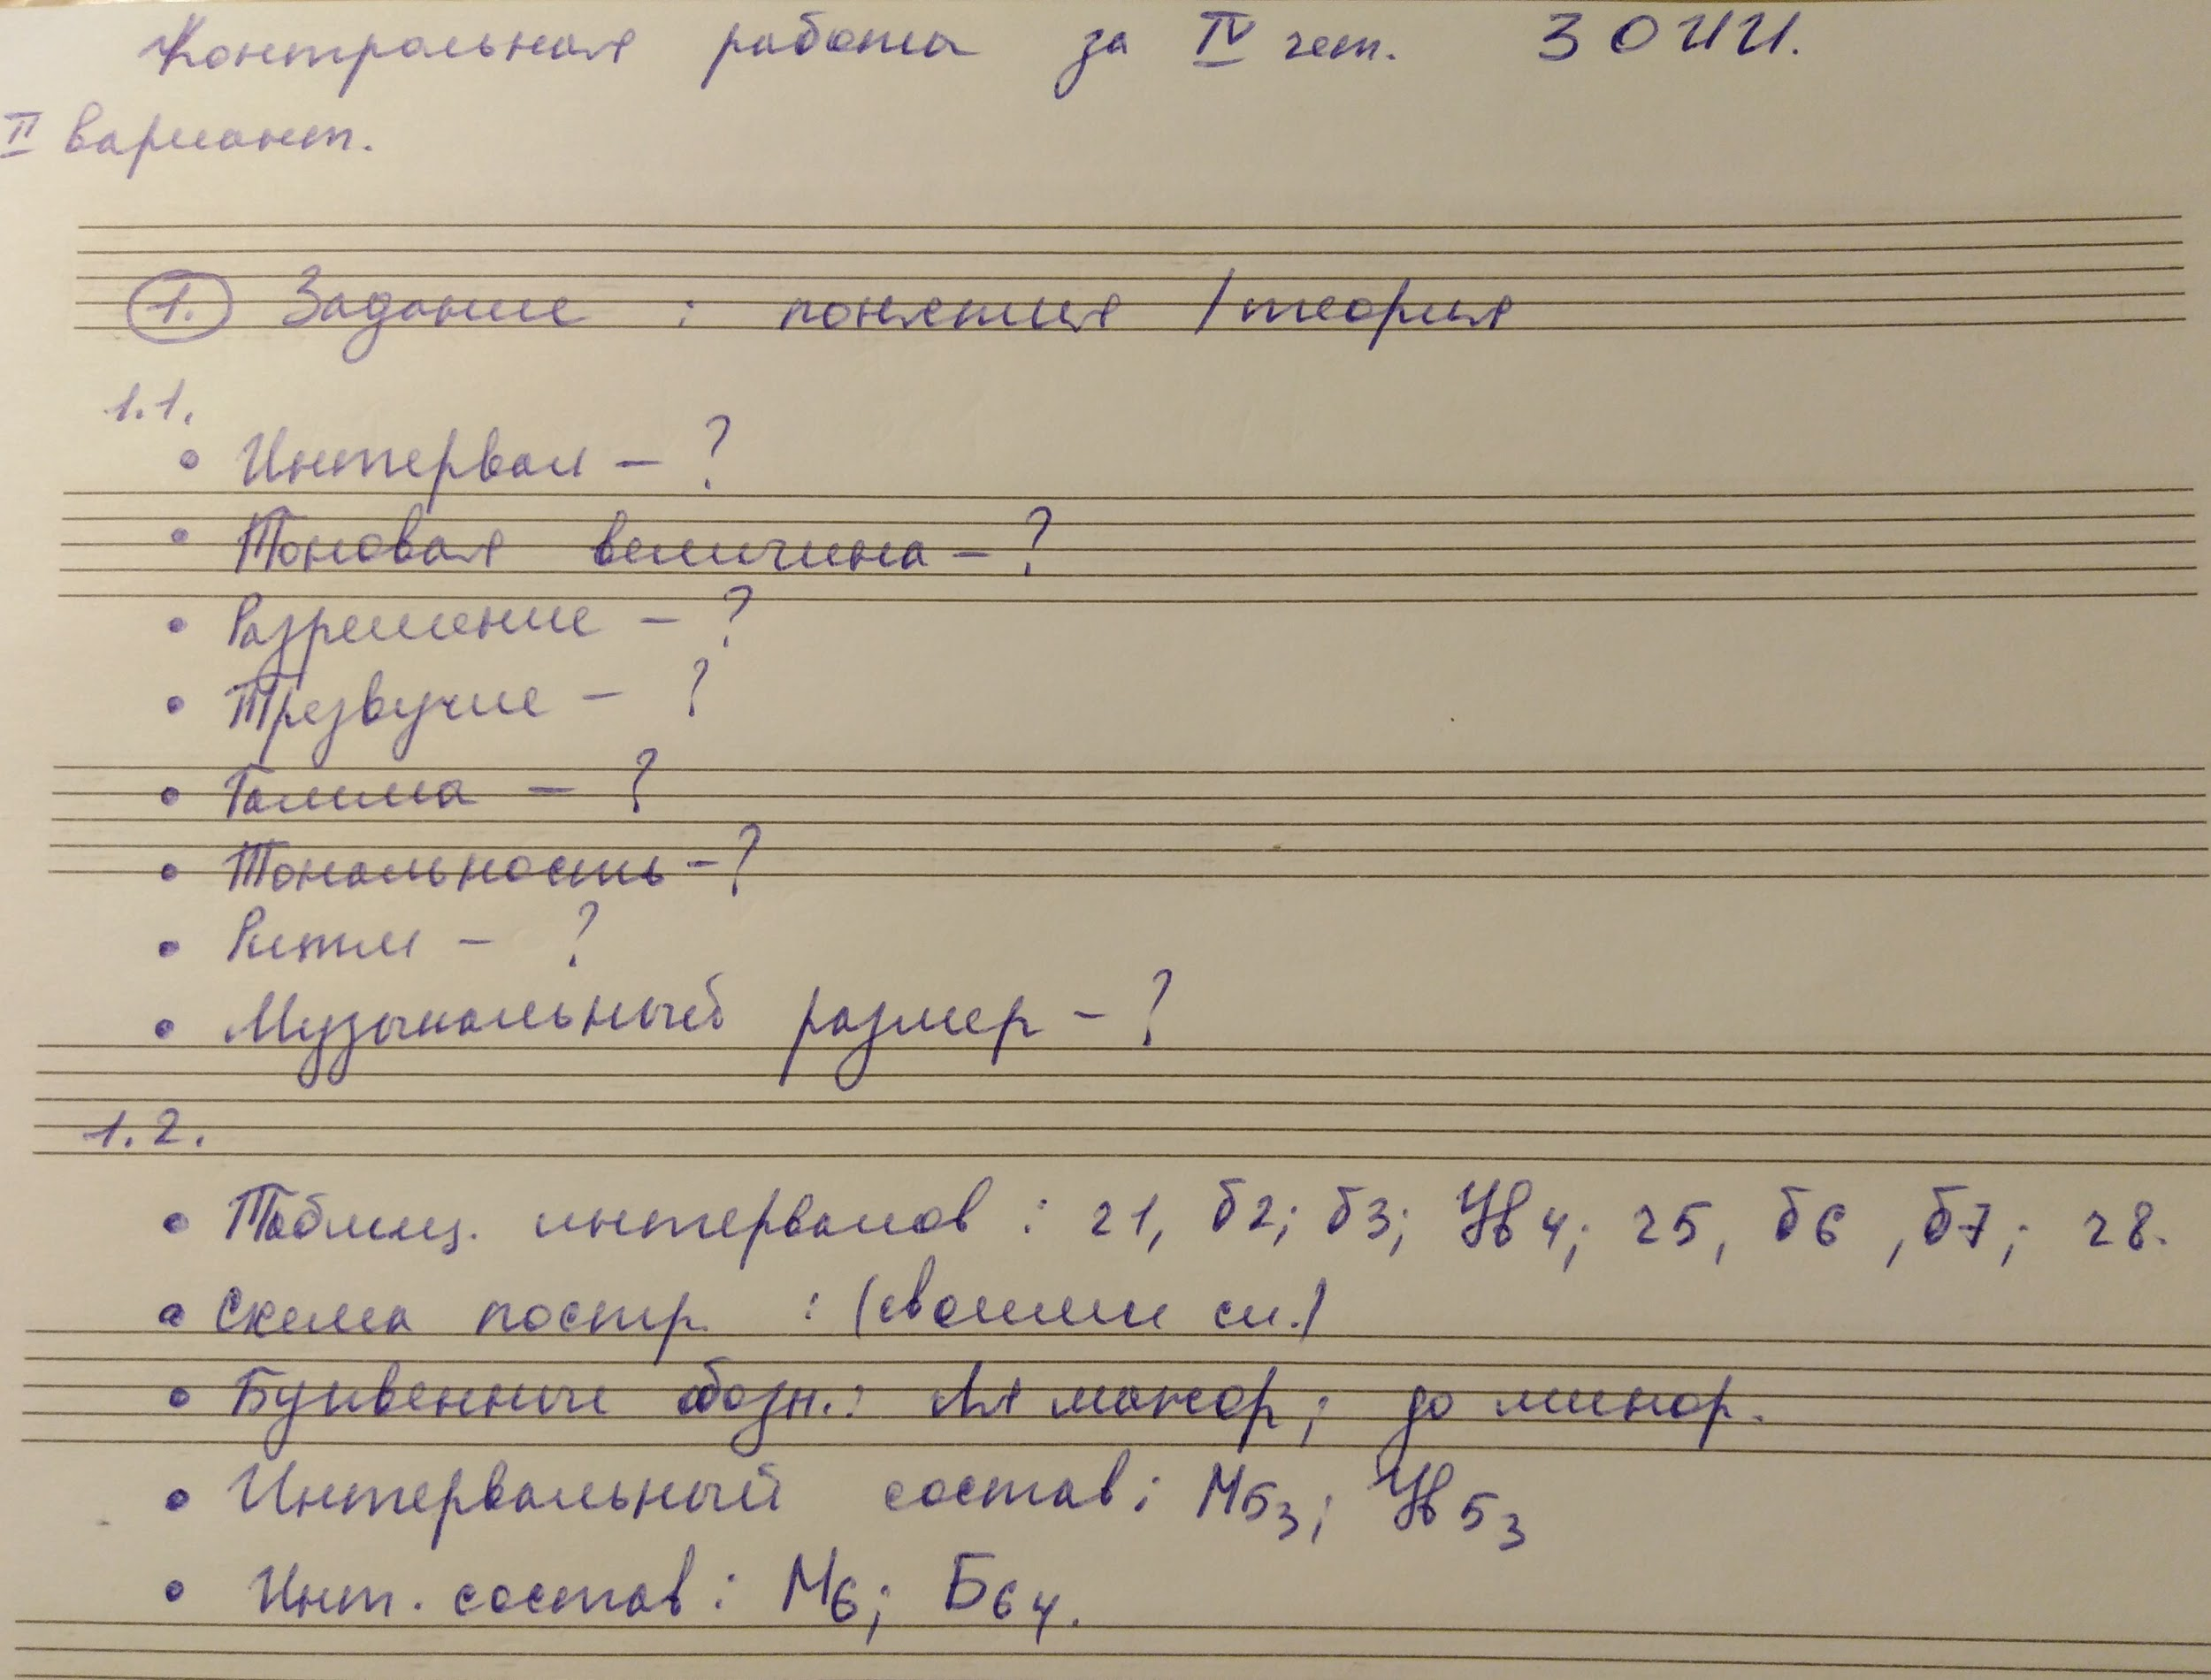 Контрольная работа за IV чет. 3 ОИИ.
II вариант.
1. Задание : понятия / теория
1.1.
• Интервал – ?
• Тоновая величина – ?
• Разрешение – ?
• Трезвучие – ?
• Гамма – ?
• Тональность – ?
• Ритм – ?
• Музыкальный размер – ?
1.2.
• Таблиц. интервалов : ч1, б2; б3; Ув 4; ч5, б6, б7; ч8.
• Схема постр. : (своими сл.)
• Буквенные обозн.: Ля мажор; до минор.
• Интервальный состав: М53; Ув53
• Инт. состав: М6; Б64.